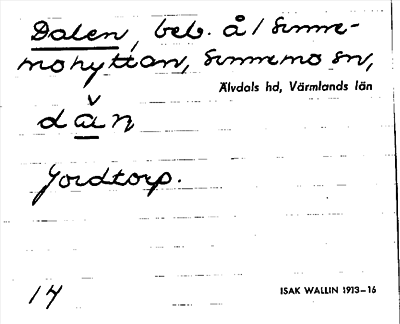 Dalen, beb. å/ Sunne-
mohyttan, Sunnemo sn,
Älvdals hd, Värmlands län
dǎn
Jordtorp.
14
ISAK WALLIN 1913–16